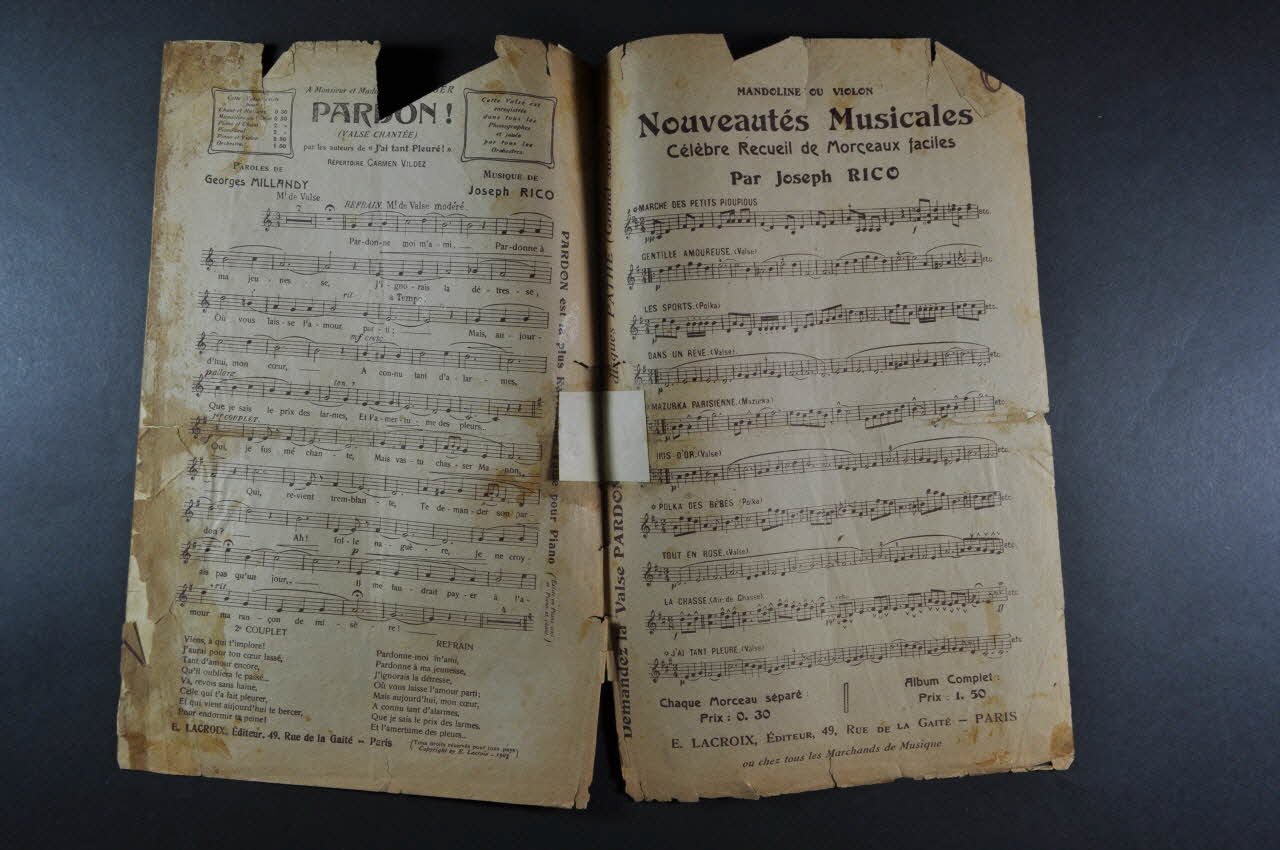 A Monsieur et
PARDON !
(VALSE CHANTÉE)
par les auteurs de « J'ai tant Pleuré! »
RÉPERTOIRE CARMEN VILDEZ
Cette Valse est
enregistrée
dans tous les
Phonographes
et jouée
par tous les
Orchestres.
PAROLES DE
Georges MILLANDY
MUSIQUE DE
Joseph RICO
Mt de Valse
REFRAIN. Mt de Valse modéré
Par-don-ne moi m'a-mi, Par-donne à
ma jeu-nes-se, J'i-gno-rais la dé-tres-se,
rit a Tempo
Où vous lais-se l'a-mour par-ti; Mais, au-jour-
mf cresc.
d'hui, mon cœur, A con-nu tant d'a-lar-mes,
ten.
Que je sais le prix des lar-mes, Et l'a-mer-tu-me des pleurs..
1er COUPLET
Oui, je fus mé-chan-te, Mais vas-tu chas-ser Ma-non,
Qui, re-vient trem-blan-te, Te de-man-der son par-
don? Ah! fol-le na-guè-re, Je ne croy-
p
ais pas qu'un jour, Il me fau-drait pay-er à l'a-
rit
mour ma ran-çon de mi-sè-re! A
2e COUPLET
Viens, à qui t'implore!
J'aurai pour ton cœur lassé,
Tant d'amour encore,
Qu'il oubliera le passé...
Va, revois sans haine,
Celle qui t'a fait pleurer,
Et qui vient aujourd'hui te bercer,
Pour endormir ta peine!
REFRAIN
Pardonne-moi m'ami,
Pardonne à ma jeunesse,
J'ignorais la détresse,
Où vous laisse l'amour parti;
Mais aujourd'hui, mon cœur,
A connu tant d'alarmes,
Que je sais le prix des larmes,
Et l'amertume des pleurs...
E. LACROIX, Éditeur, 49, Rue de la Gaîté — Paris
(Tous droits réservés pour tous pays)
PARDON est la plus
pour Piano
Demandez la Valse PARDON
PATHÉ (Grand succès)
MANDOLINE OU VIOLON
Nouveautés Musicales
Célèbre Recueil de Morçeaux faciles
Par Joseph RICO
MARCHE DES PETITS PIOUPIOUS
etc.
GENTILLE AMOUREUSE.(Valse)
etc.
LES SPORTS.(Polka)
etc.
DANS UN RÊVE.(Valse)
etc.
MAZURKA PARISIENNE.(Mazurka)
etc.
IRIS D'OR.(Valse)
etc.
POLKA DES BÉBÉS (Polka)
etc.
TOUT EN ROSE.(Valse)
etc.
LA CHASSE.(Air de Chasse)
etc.
J'AI TANT PLEURÉ.(Valse)
etc.
Chaque Morceau séparé :
Prix : 0. 30
Album Complet :
Prix : 1. 50
E. LACROIX, ÉDITEUR, 49, RUE DE LA GAITÉ — PARIS
ou chez tous les Marchands de Musique